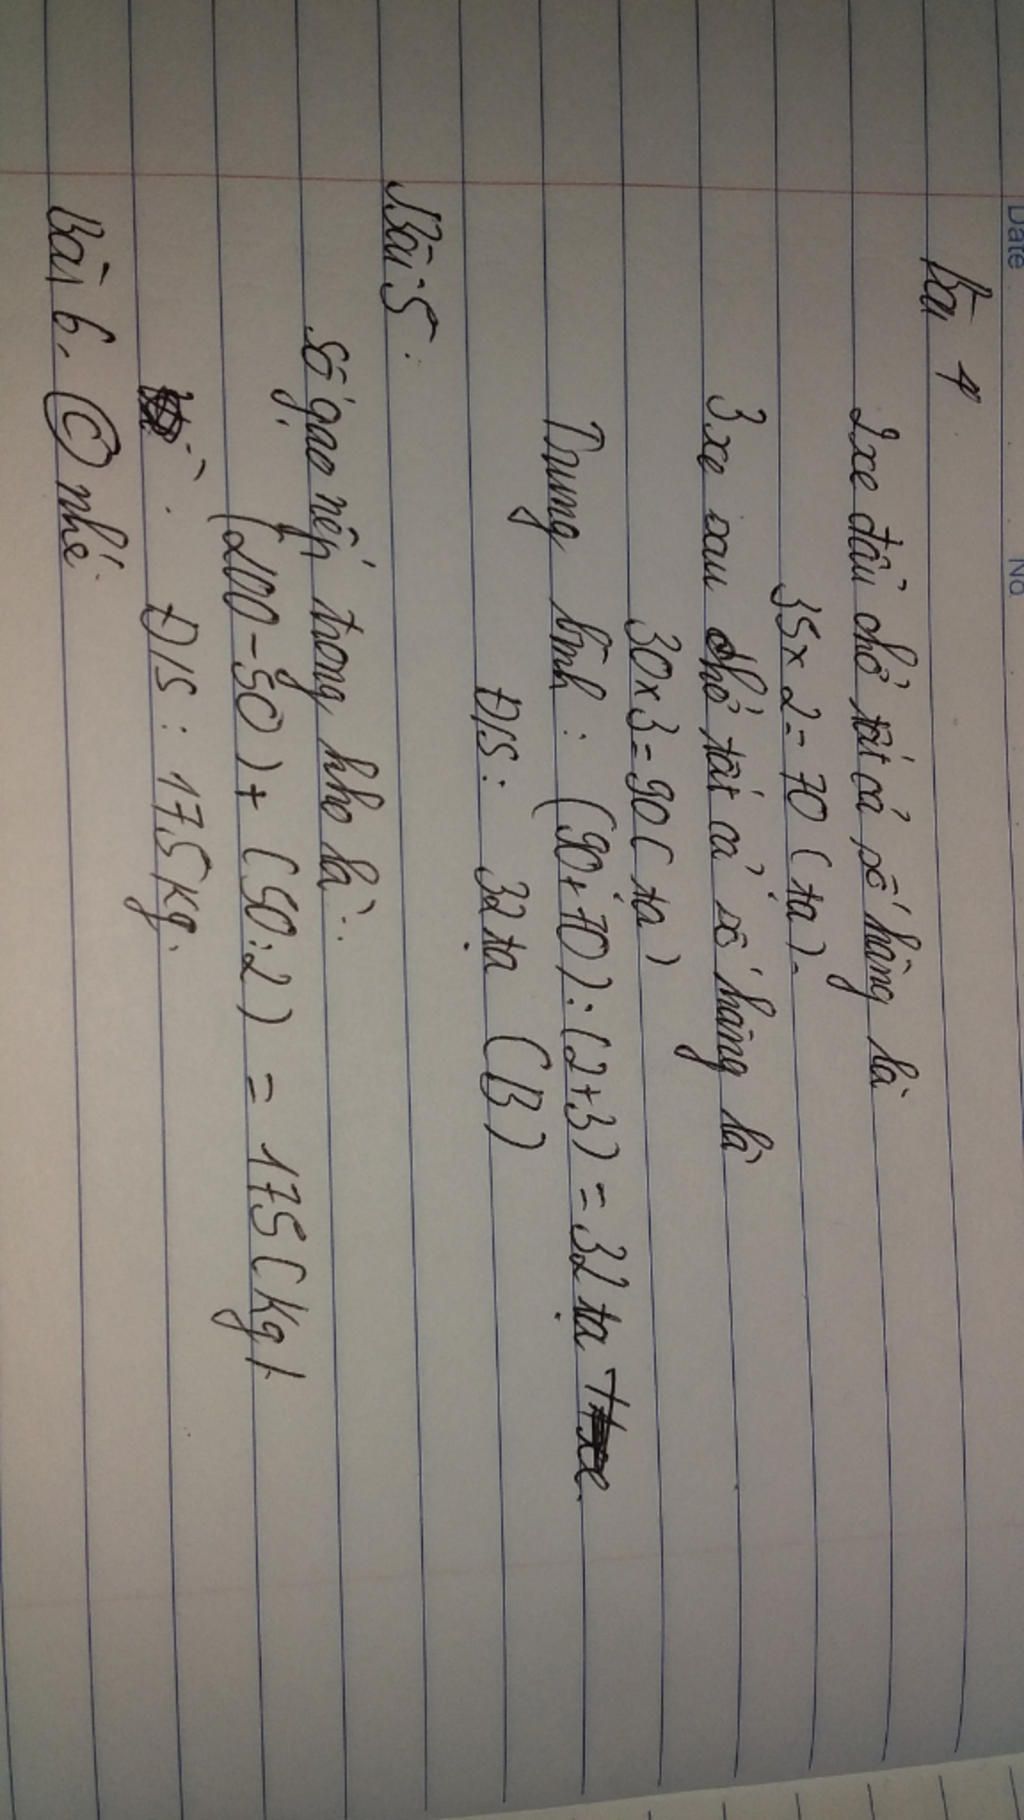 Date
No
Bài 4
2 xe đầu chở tất cả số hàng là
35 x 2 = 70 (tạ).
3 xe sau chở tất cả số hàng là
30 x 3 = 90 (tạ)
Trung bình : (90 + 70) : (2 + 3) = 32 tạ
Đ/S : 32 tạ (B)
Bài 5 :
số gạo nếp trong kho là :
(200 - 50) + (50 : 2) = 175 (kg).
Đ/S : 175 kg.
Bài 6. C nhé.